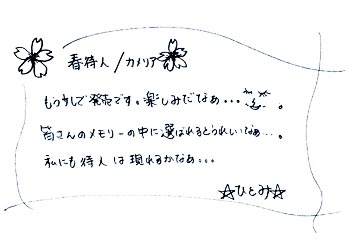 春待人/カメリア
もう少しで発売です。楽しみだなぁ・・・。
皆さんのメモリーの中に選ばれるとうれしいなぁ・・・。
私にも待人は現れるかなぁ・・・
☆ひとみ☆